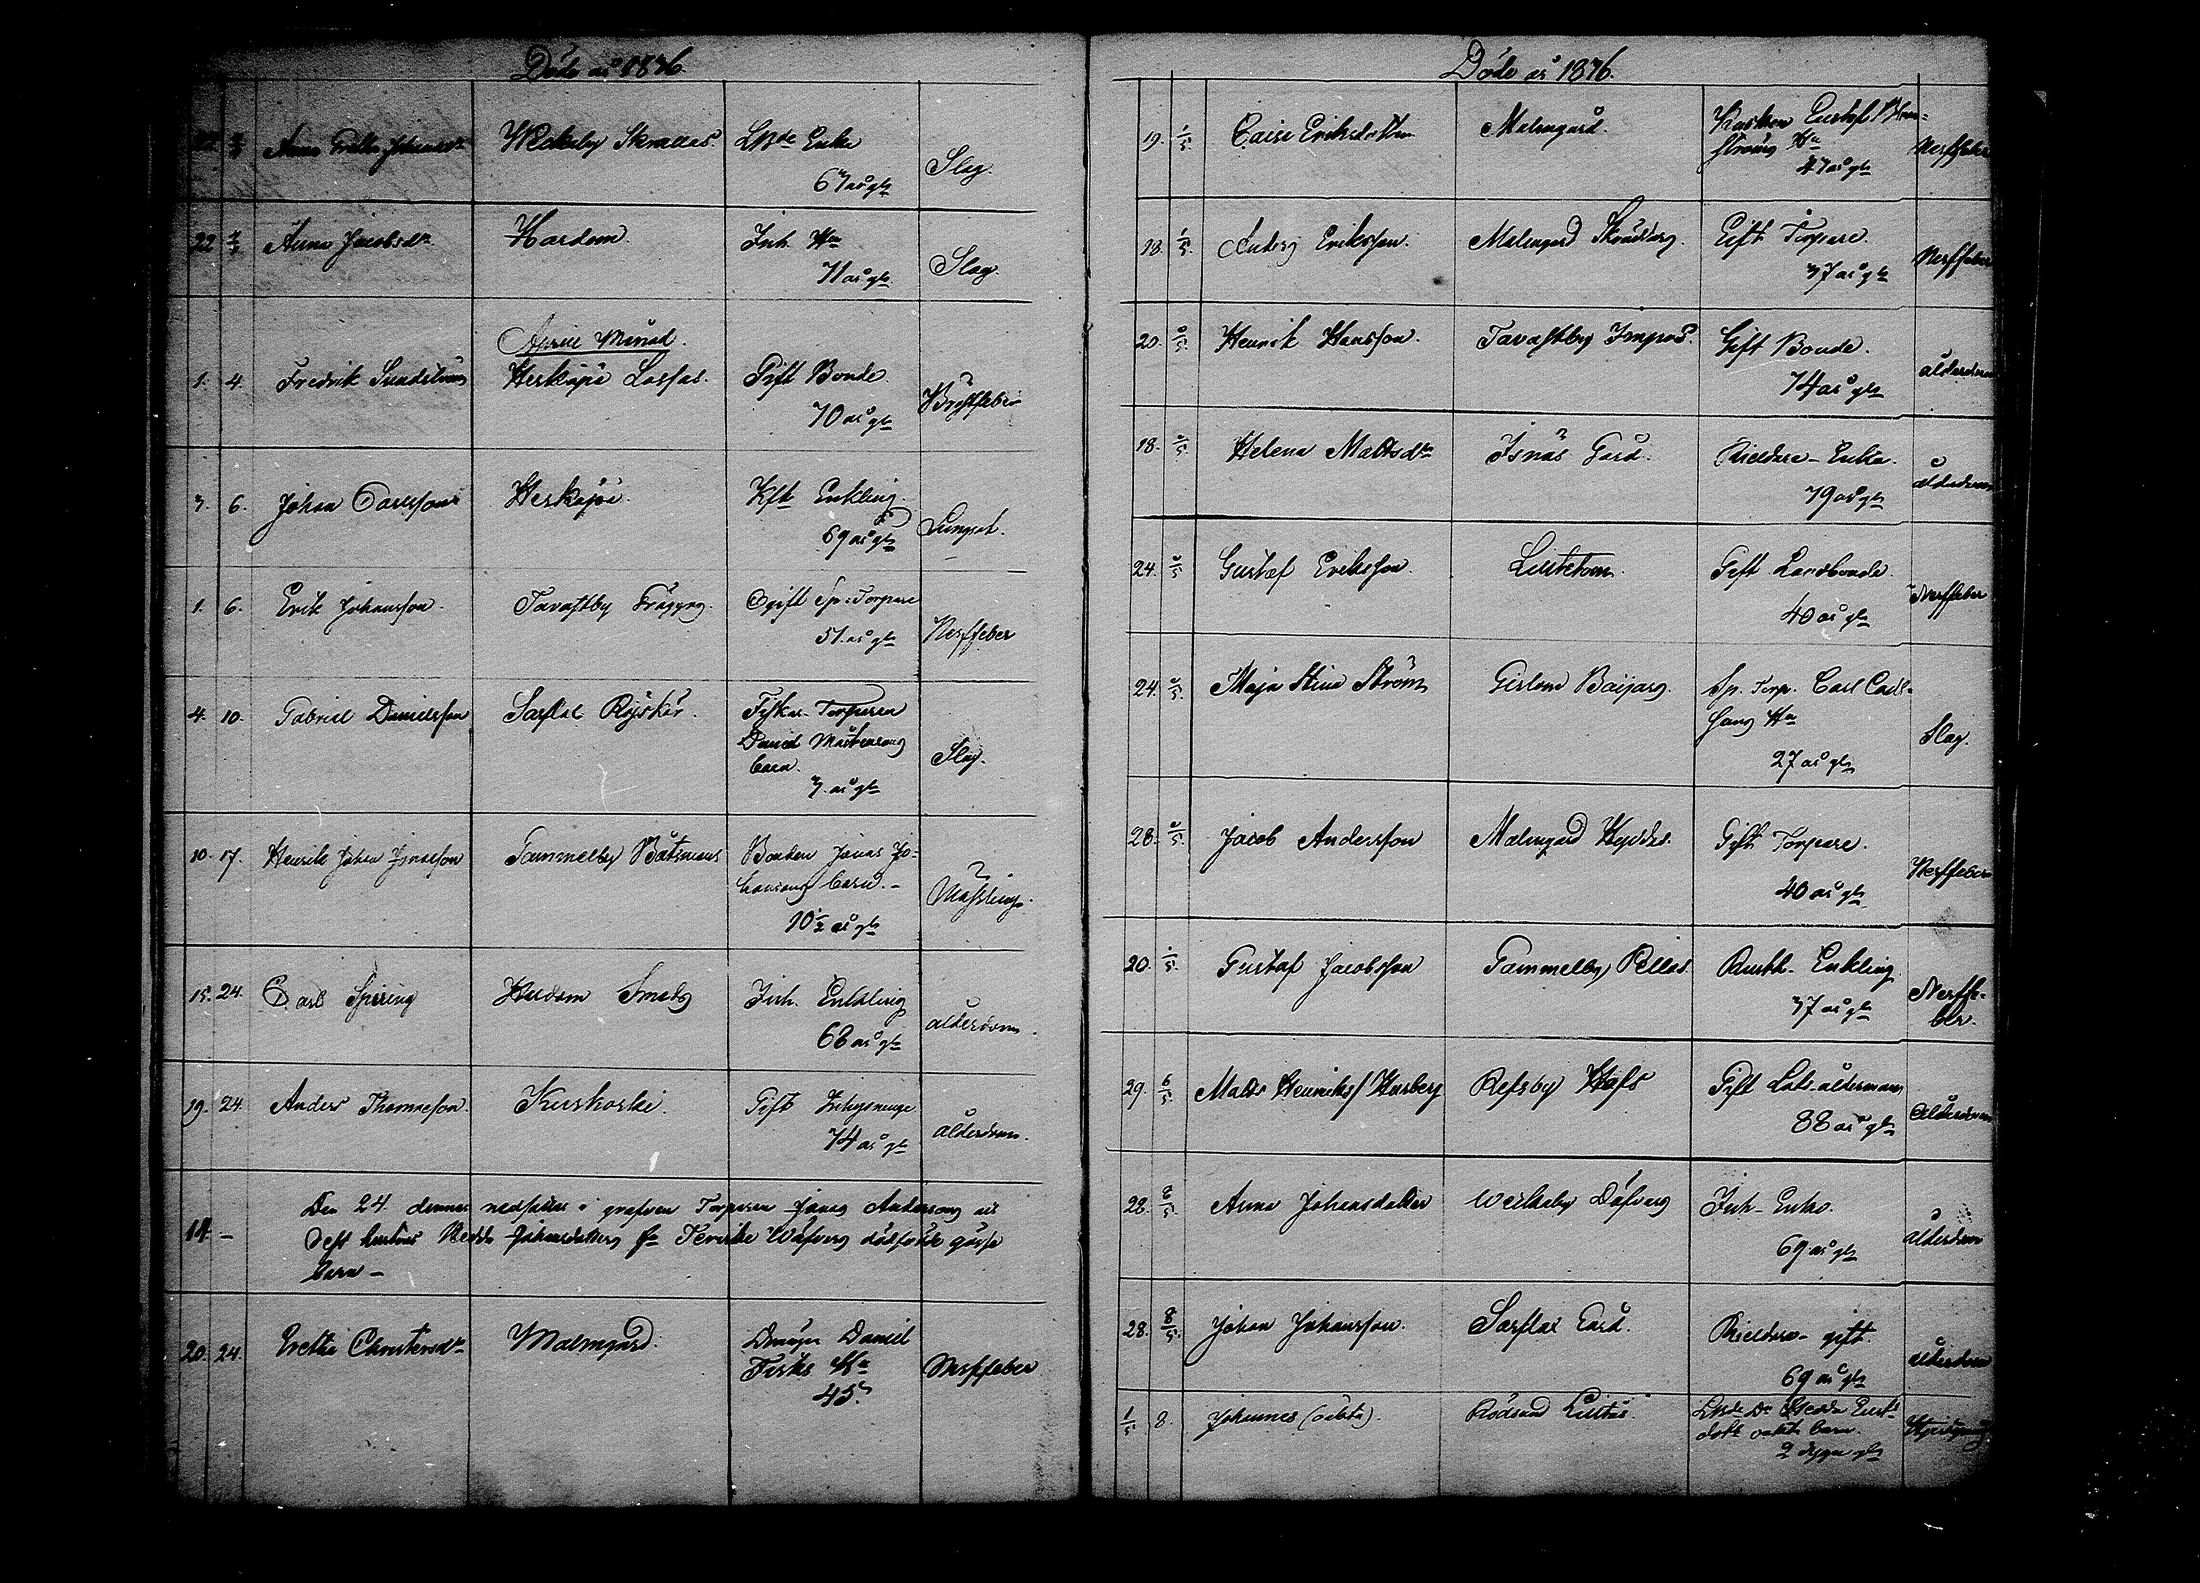 Döde år 1876.
Anna Greta Johansdr
Skrallas
Enka
67 år gl
Slag.
22 Anna Jacobsdr Hardom. Inh. Hu
71 år gl
Slag.
April Månad.
1. 4. Fredrik Sundström Heskäpä Lassas. Gift Bonde.
70 år gl
Bröstfeber
3. 6. Johan Carlsson Heskäpä. Enkling.
69 år gl
Lungsot.
1. 6. Erik Johansson. Tavastby Ogift Sp: Torpare
51. år gl
Nerffeber
4. 10. Gabriel Danielsson Sarflax Röjskär. Fiskar-Torparen
David
barn.
3. år gl
Slag.
10. 17. Henrik Johan Jonasson Gammelby Båtsmans Bonden Jonas Jo-
hanssons barn.-
10 1/2 år gl
Mässling.
15. 24. Carl Spiring Hardom Smeds Inh. Enkling
68 år gl
ålderdom.
19. 24. Anders Thomasson. Kuskoski. Gift Inhysninge
74 år gl
ålderdom.
Den 24 dennes nedsattes i grafven Torparen Jonas Anderssons och
14. - dess hustrus Hedda Johansdotters fr Tervike dödfödde gosse
barn -
20. 24. Greta Christersdr Malmgård. Dränge Daniel
Hu
45.
Nerffeber
Döde år 1876.
19. 1/5. Caisa Eriksdotter Malmgård. Kusken Gustaf
ströms Hu
47 år gl
Nerffeber
18. 1/5. Anders Eriksson. Malmgård Gift Torpare.
37 år gl
Nerffeber
20. Henrik Hansson. Tavastby Gift Bonde.
74 år gl
ålderdom
18. Helena Mattsdr Isnäs Gård. Enka.
79 år gl
ålderdom
24. Gustaf Eriksson. Gift Landbonde.
40 år gl
Nerffeber
24. Maja Stina Ström Gislom Baijars. Sp. Torp. Carl Carl-
sons Hu
27 år gl
Slag.
28. Jacob Andersson Malmgård Gift Torpare.
40 år gl
Nerffeber
20. Gustaf Jacobsson Gammelby Pellas Rusth. Enkling
37 år gl
Nerffe-
ber.
29. 6/5. Matts Henriksson Husberg Refsby Gift Lots ålderman
88 år gl
Ålderdom
22. 8/5. Anna Johansdotter Inh. Enka.
69 år gl
ålderdom
28. 8/5. Johan Johansson. Sarflax Gård. gift.
69 år gl
ålderdom
1/5 8. Johannes (oäkta). Rödsund Hedda Gust-
dotr oäkta barn.
2 dygn gl